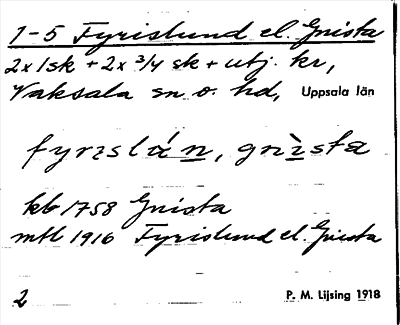 1-5 Fyrislund el. Gnista
2x1sk + 2x 3/4 sk + utj. kr,
Vaksala sn o. hd, Uppsala län
fyrıslán, gnìsta
kb 1758 Gnista
mtl 1916 Fyrislund el. Gnista
2 P. M. Lijsing 1918